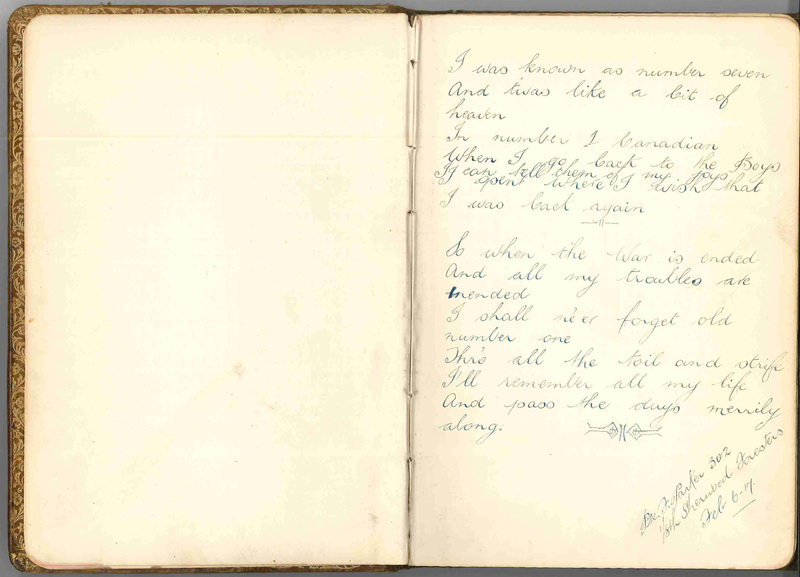 I was known as number seven
And t'was like a bit of
heaven
In number 1 Canadian
When I go back to the Boys
I can tell them of my joys
I spent where I wish that
I was back again
So when the War is ended
And all my troubles are
mended
I shall ne'er forget old
number one
Thro all the toil and strife
I'll remember all my life
And pass the days merrily
along.
Pte F. Parker 302
Sherwood Foresters
Feb 6-17.